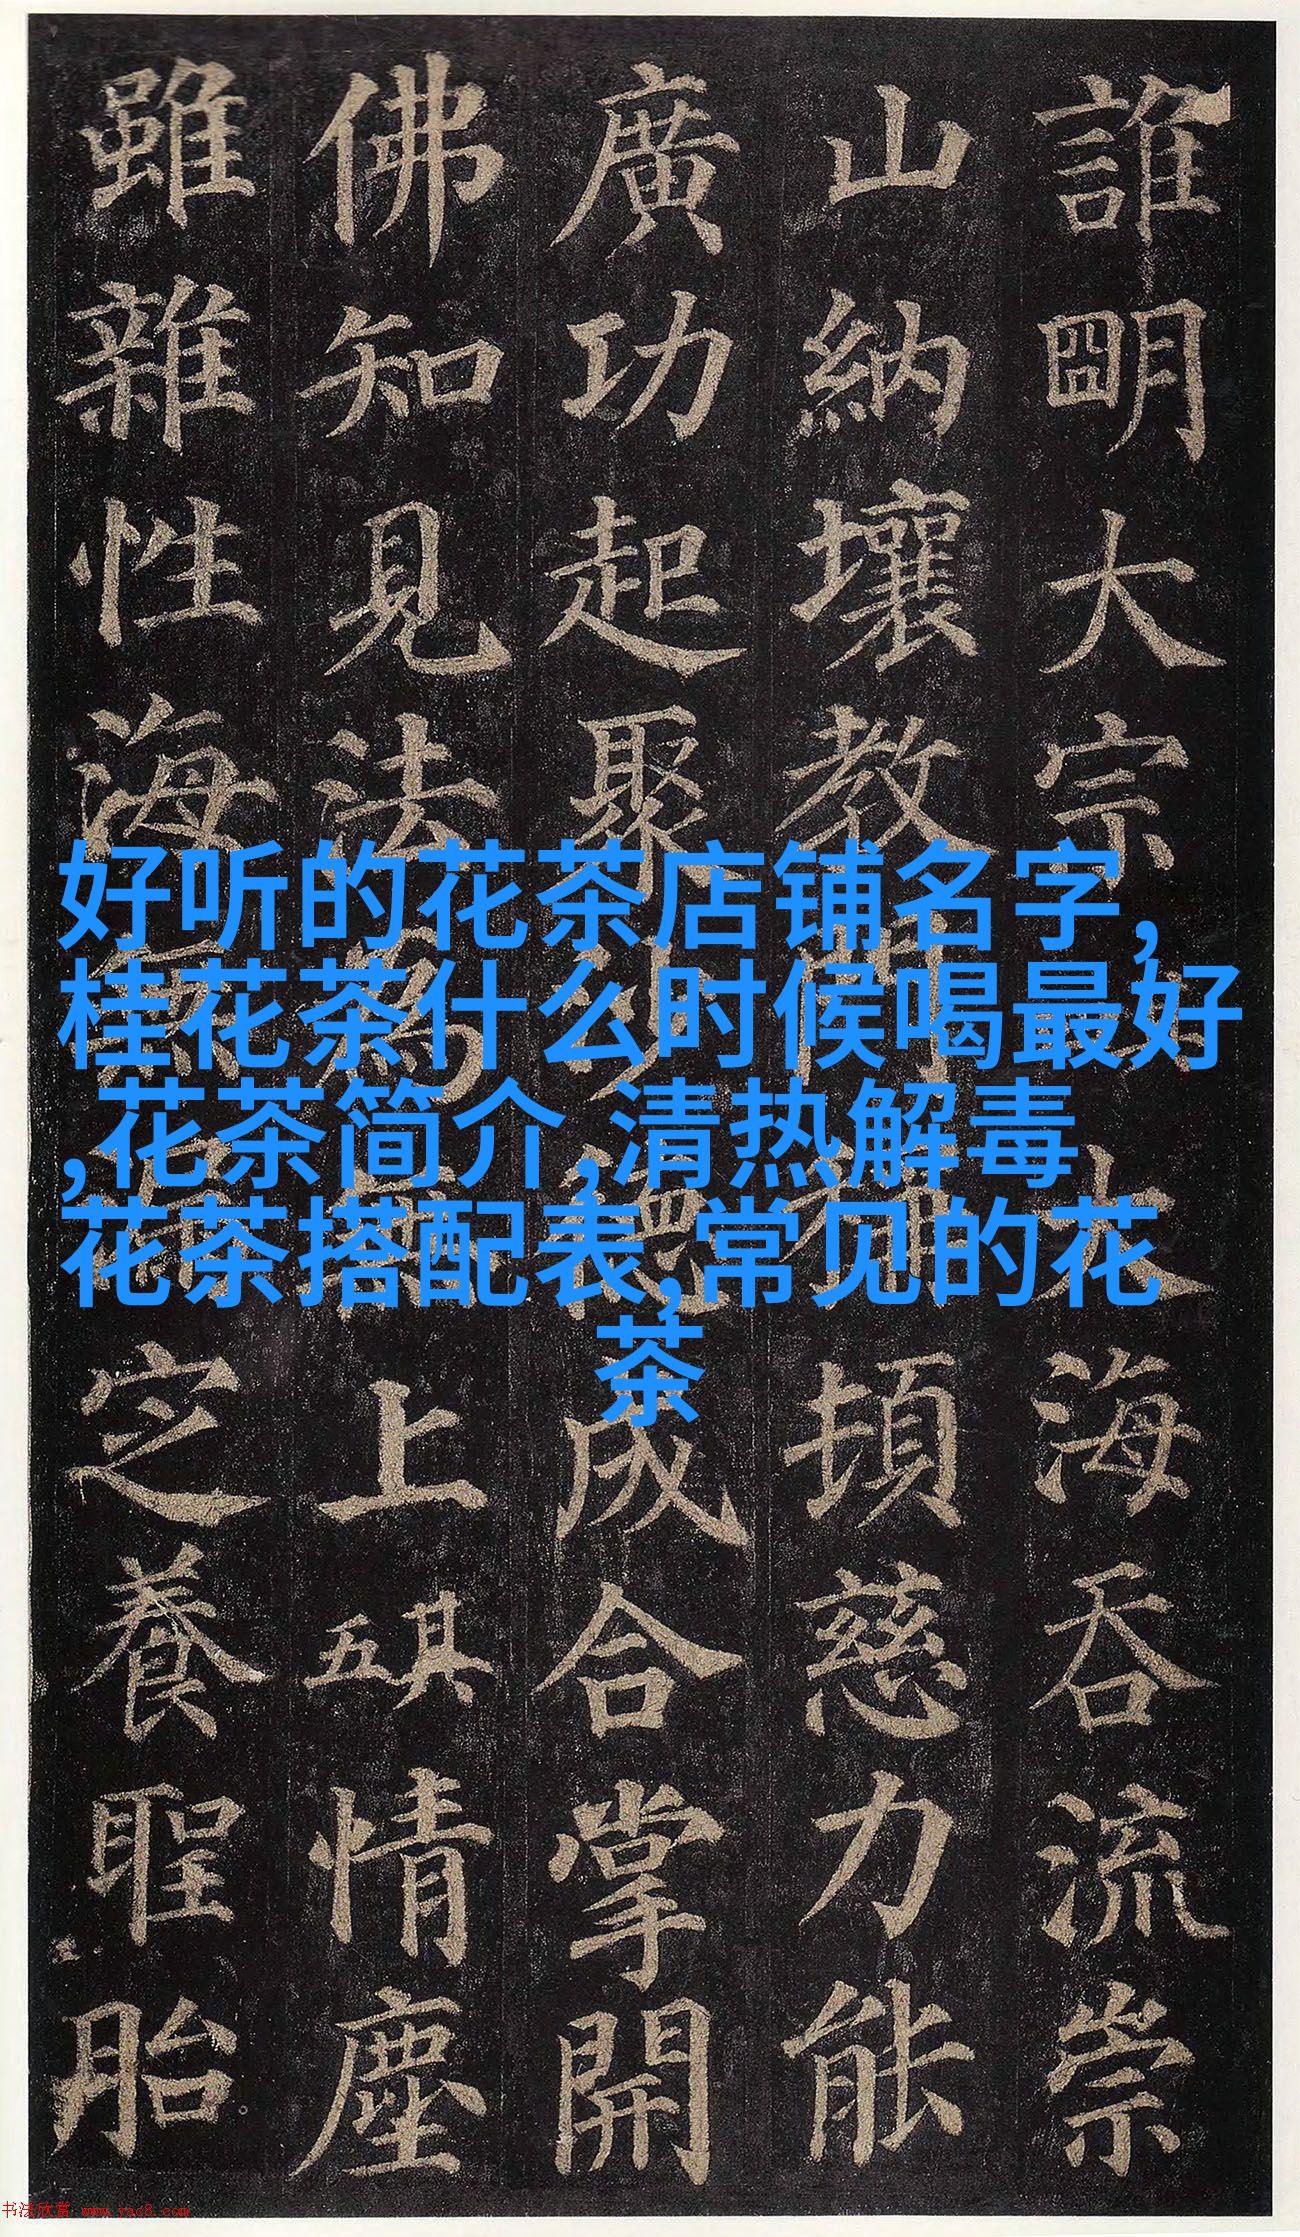 誰明大宗大海吞流崇
山納壤教門稱頓慈力能
廣功起聚沙德成合掌開
佛知見法為無上其五情塵
雖雜性海無漏定養聖胎
好听的花茶店铺名字,
桂花茶什么时候喝最好
,花茶简介,清热解毒
花茶搭配表,常见的花
茶
书法欣赏 www.yac8.com